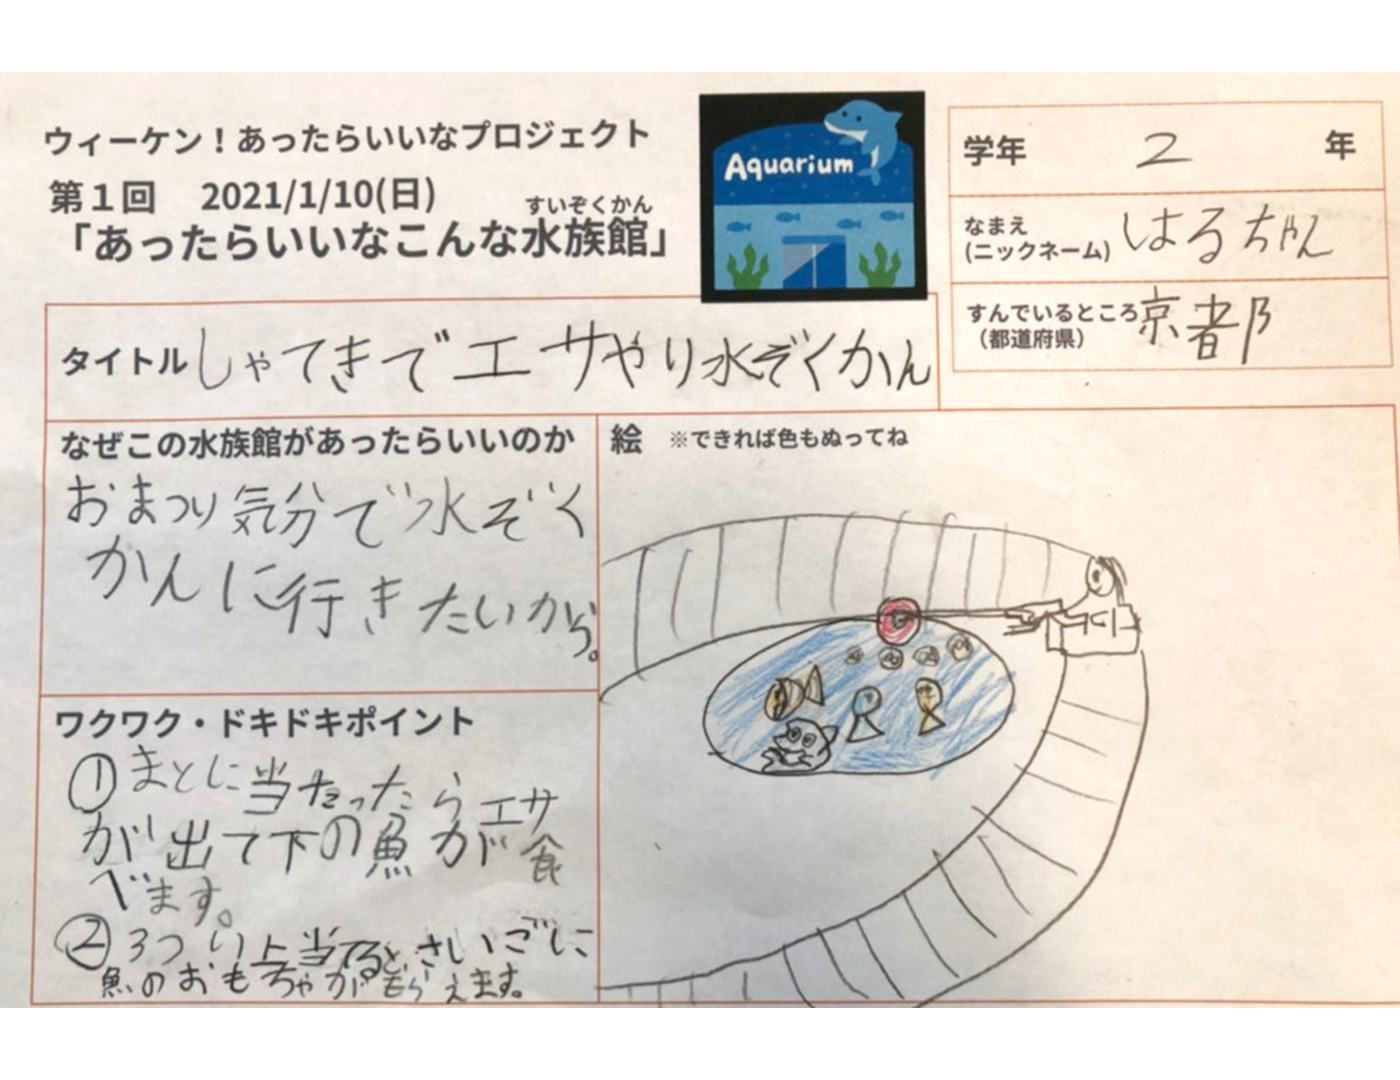 ウィーケン！あったらいいなプロジェクト
第１回　2021/1/10(日)
すいぞくかん
「あったらいいなこんな水族館」
Aquarium
学年 2 年
なまえ
(ニックネーム) はるちゃん
すんでいるところ
（都道府県） 京都
タイトル しゃてきでエサやり水ぞくかん
なぜこの水族館があったらいいのか
おまつり気分で水ぞく
かんに行きたいから。
ワクワク・ドキドキポイント
①まとに当たったらエサ
が出て下の魚が食
べます。
②3つい上当てるとさいごに
魚のおもちゃがもらえます。
絵　※できれば色もぬってね